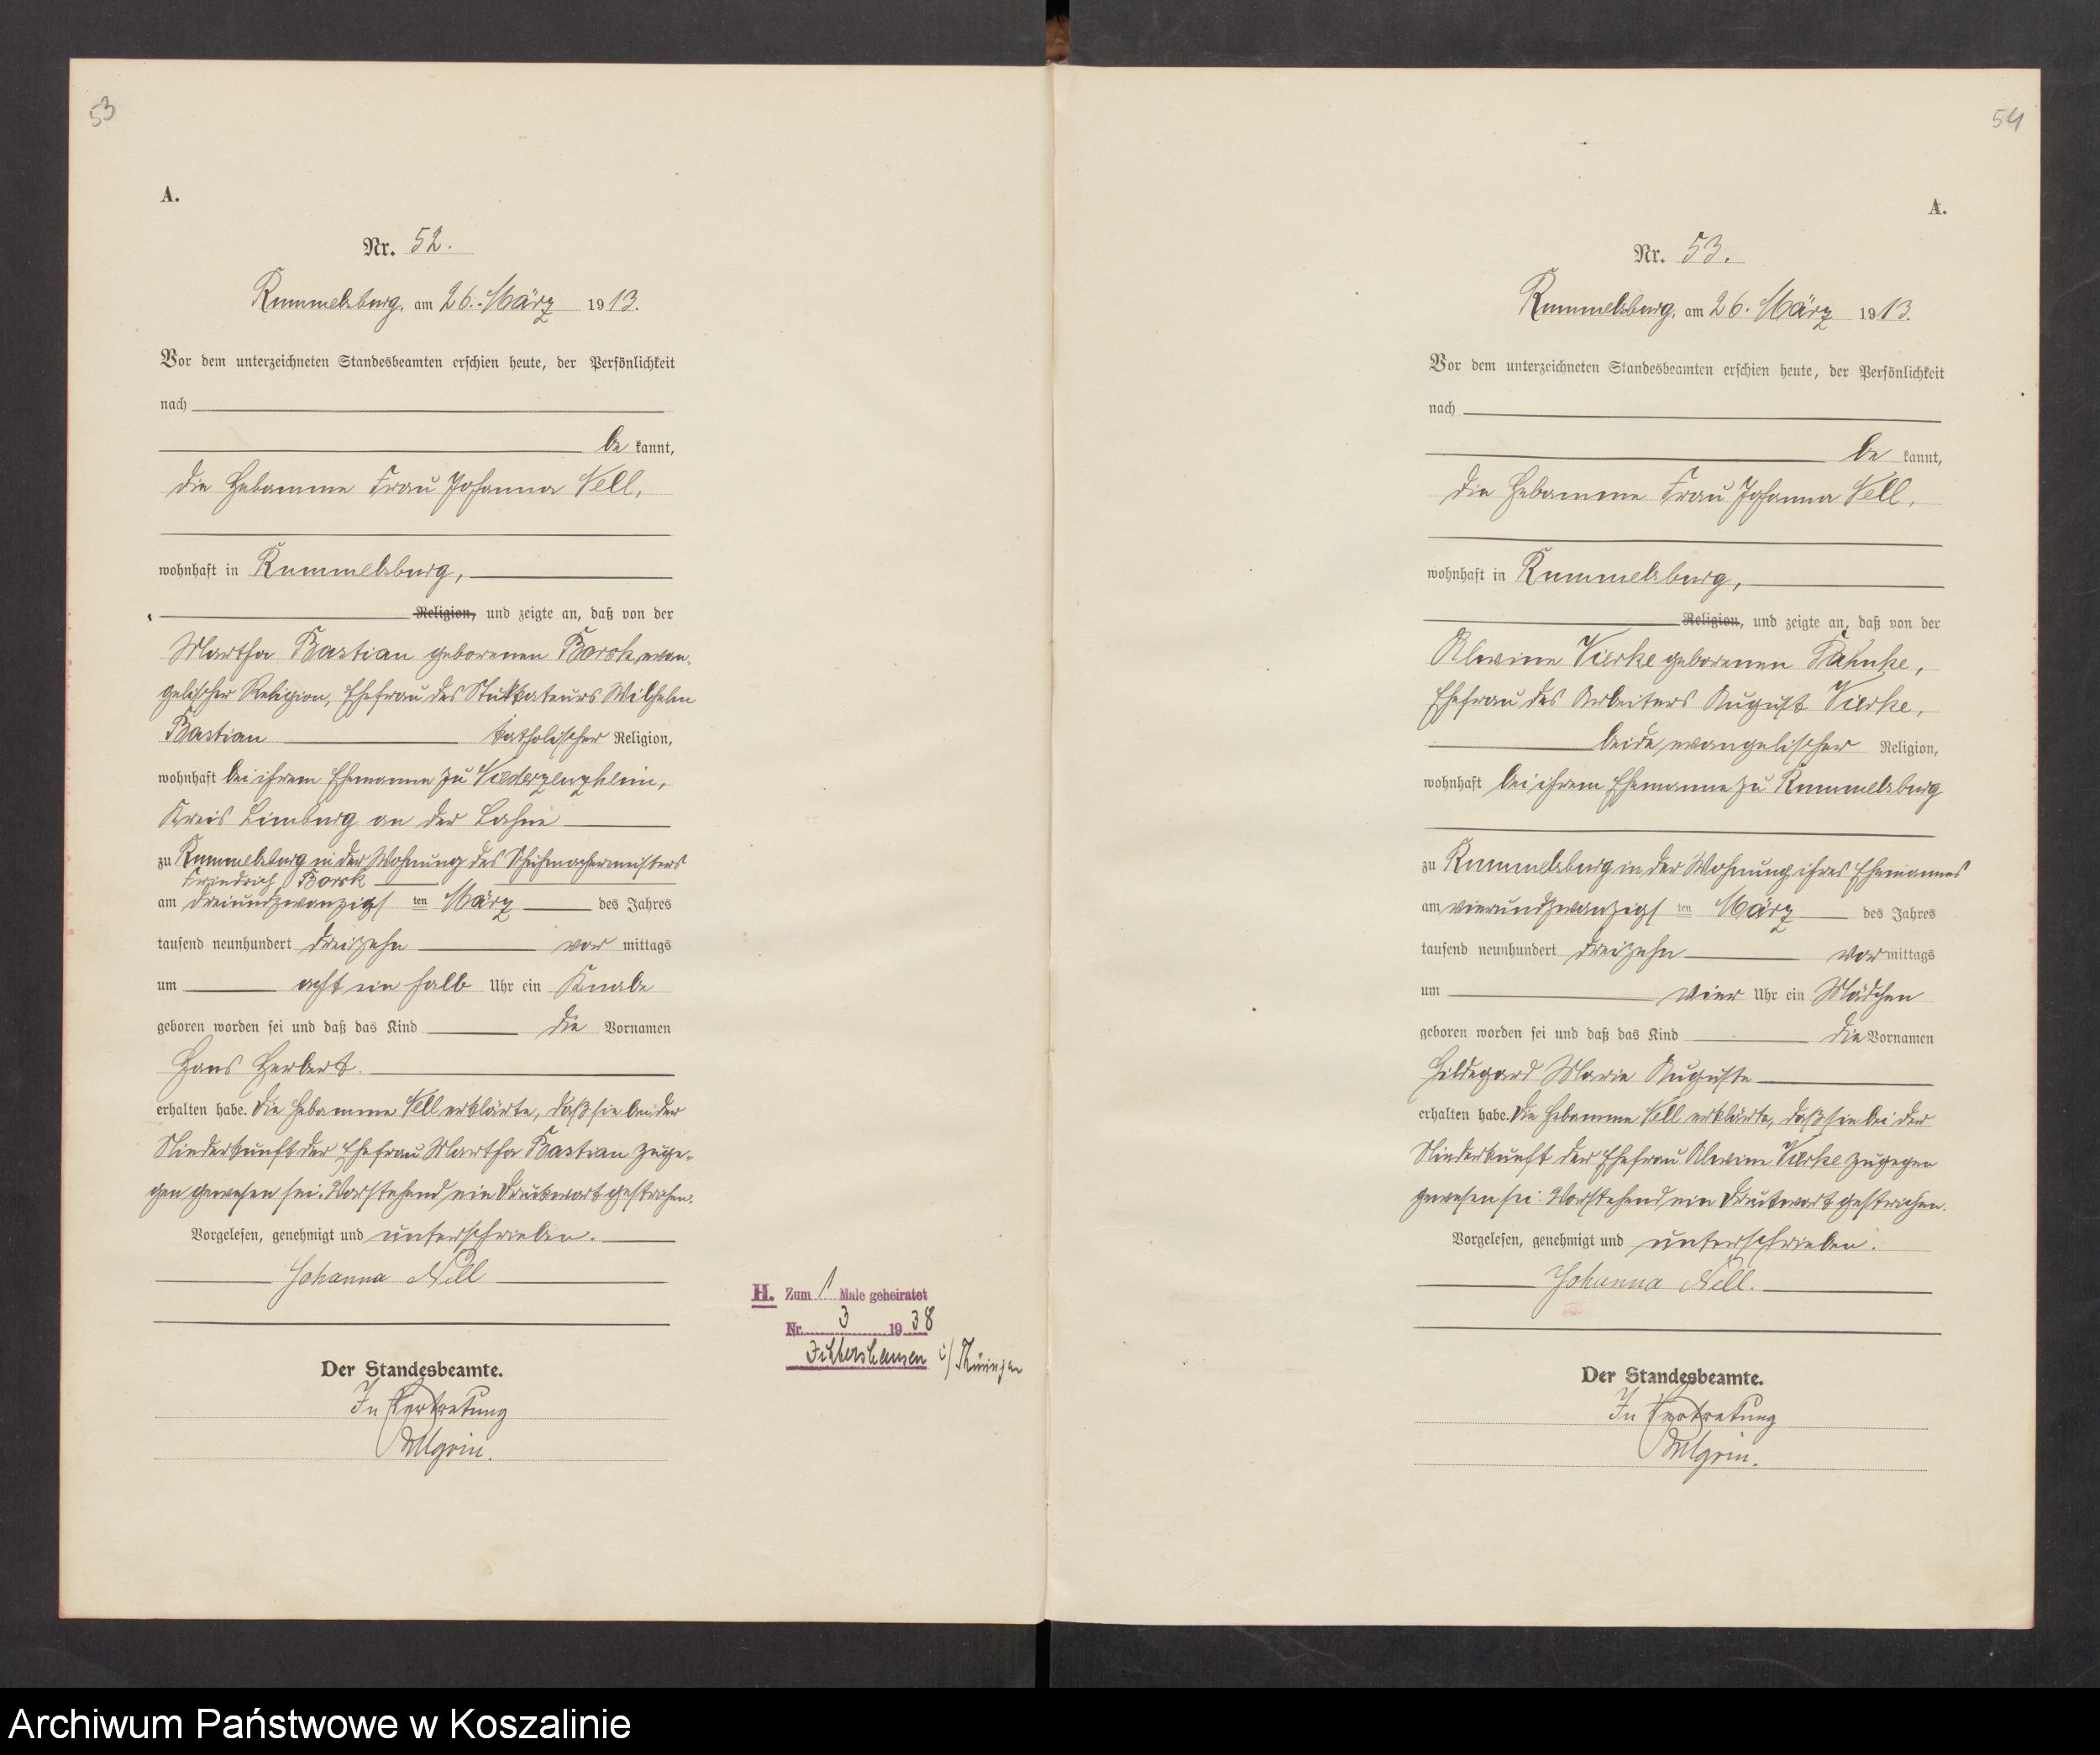 53
A.
Nr. 52.
Rummelsburg, am 26. März 1913.
Vor dem unterzeichneten Standesbeamten erschien heute, der Persönlichkeit
nach
be kannt,
die Hebamme Frau Johanna Nell,
wohnhaft in Rummelsburg,
Religion, und zeigte an, daß von der
Martha Bastian geborenen Borck, evan-
gelischer Religion, Ehefrau des Stukkateurs Wilhelm
Bastian katholischer Religion,
wohnhaft bei ihrem Ehemanne zu
Kreis Limburg an der Lahn
zu Rummelsburg in der Wohnung des Schuhmachermeisters
Friedrich Borck
am dreiundzwanzigsten März des Jahres
tausend neunhundert dreizehn vor mittags
um acht ein halb Uhr ein Knabe
geboren worden sei und daß das Kind die Vornamen
Hans Herbert
erhalten habe. Die Hebamme Nell erklärte, daß sie bei der
Niederkunft der Ehefrau Martha Bastian zuge-
gen gewesen sei. Vorstehend ein Druckwort gestrichen.
Vorgelesen, genehmigt und unterschrieben.
Johanna Nell
Der Standesbeamte.
In Vertretung
H. Zum 1 Male geheiratet
Nr. 3 1938
Ichtershausen i/Thüringen
54
A.
Nr. 53.
Rummelsburg, am 26. März 1913.
Vor dem unterzeichneten Standesbeamten erschien heute, der Persönlichkeit
nach
be kannt,
die Hebamme Frau Johanna Nell,
wohnhaft in Rummelsburg,
Religion, und zeigte an, daß von der
Alwine Vierke geborenen
Ehefrau des Arbeiters August Vierke,
beide evangelischer Religion,
wohnhaft bei ihrem Ehemanne zu Rummelsburg
zu Rummelsburg in der Wohnung ihres Ehemannes
am vierundzwanzigsten März des Jahres
tausend neunhundert dreizehn vor mittags
um vier Uhr ein Mädchen
geboren worden sei und daß das Kind die Vornamen
Hildegard Marie Auguste
erhalten habe. Die Hebamme Nell erklärte, daß sie bei der
Niederkunft der Ehefrau Alwine Vierke zugegen
gewesen sei. Vorstehend ein Druckwort gestrichen.
Vorgelesen, genehmigt und unterschrieben.
Johanna Nell.
Der Standesbeamte.
In Vertretung
Archiwum Państwowe w Koszalinie